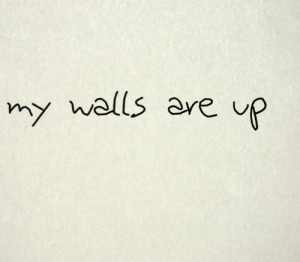 my walls are up